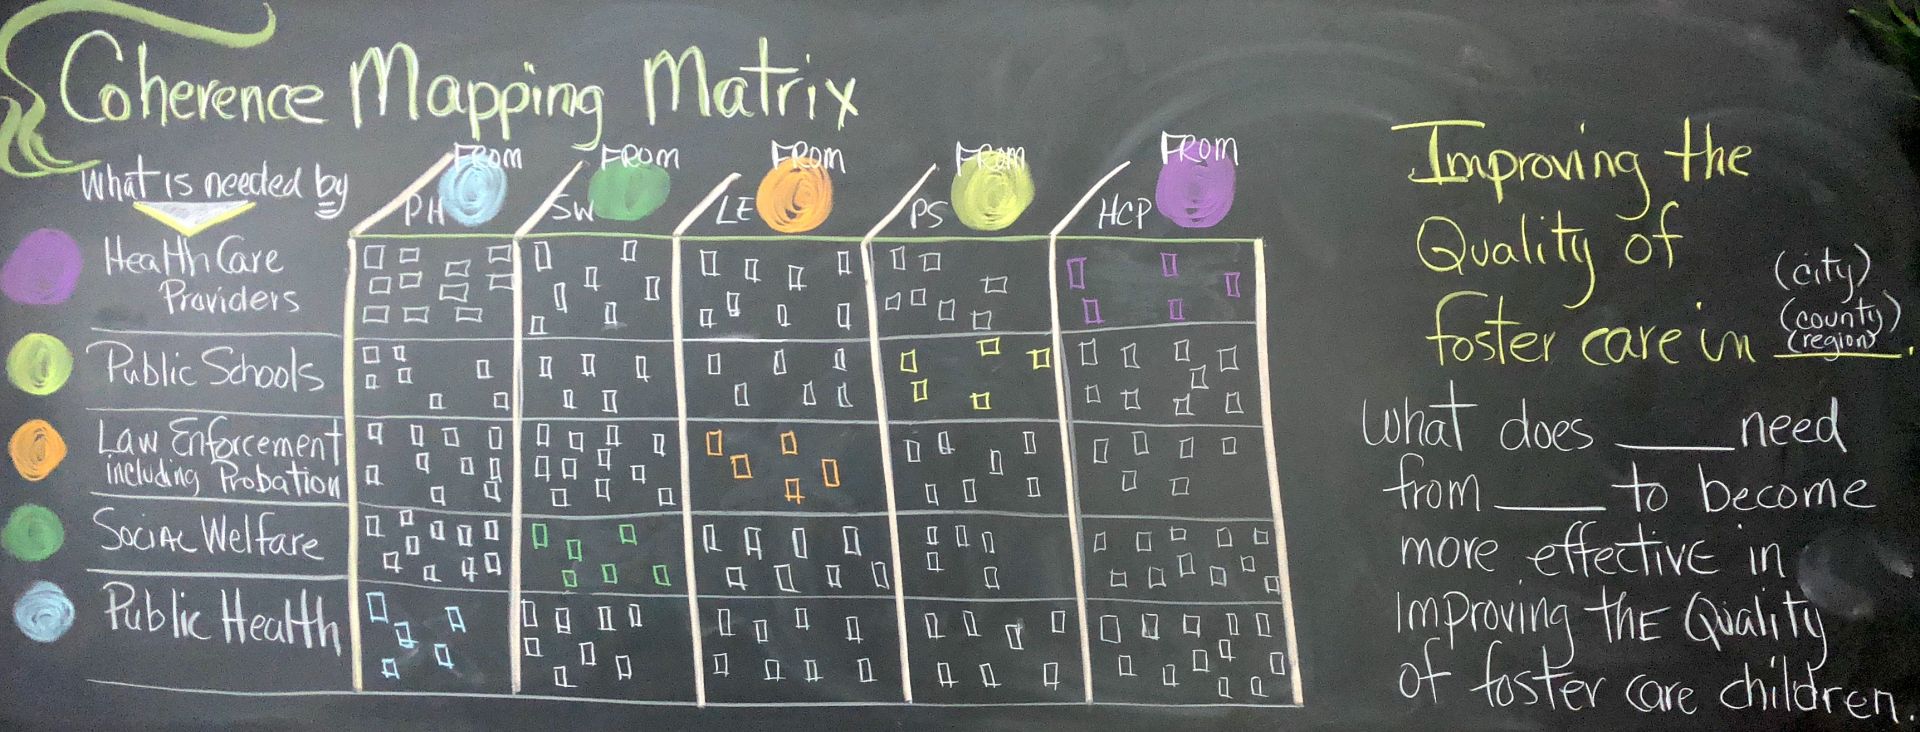 Coherence Mapping Matrix
What is needed by
FROM FROM FROM FROM FROM
PH SW LE PS HCP
Health Care
Providers
Public Schools
Law Enforcement
including Probation
Social Welfare
Public Health
Improving the
Quality of
foster care in ____.
(city)
(county)
(region)
What does ____ need
from ____ to become
more effective in
Improving the Quality
of foster care children.